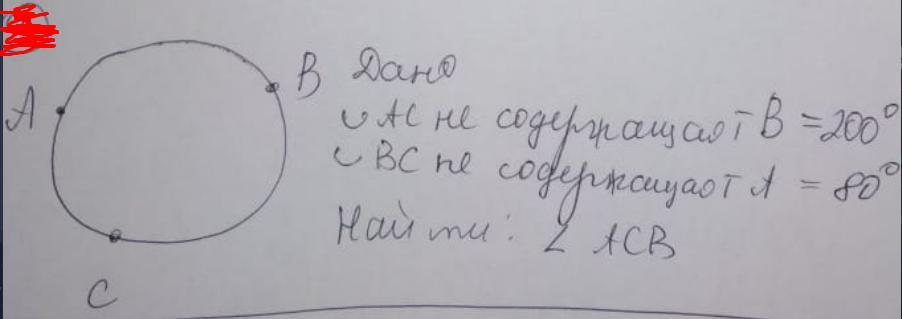 A
B
C
Дано
◡ AC не содержащаят B = 200°
◡ BC не содержащаот A = 80°
Найти: ∠ ACB